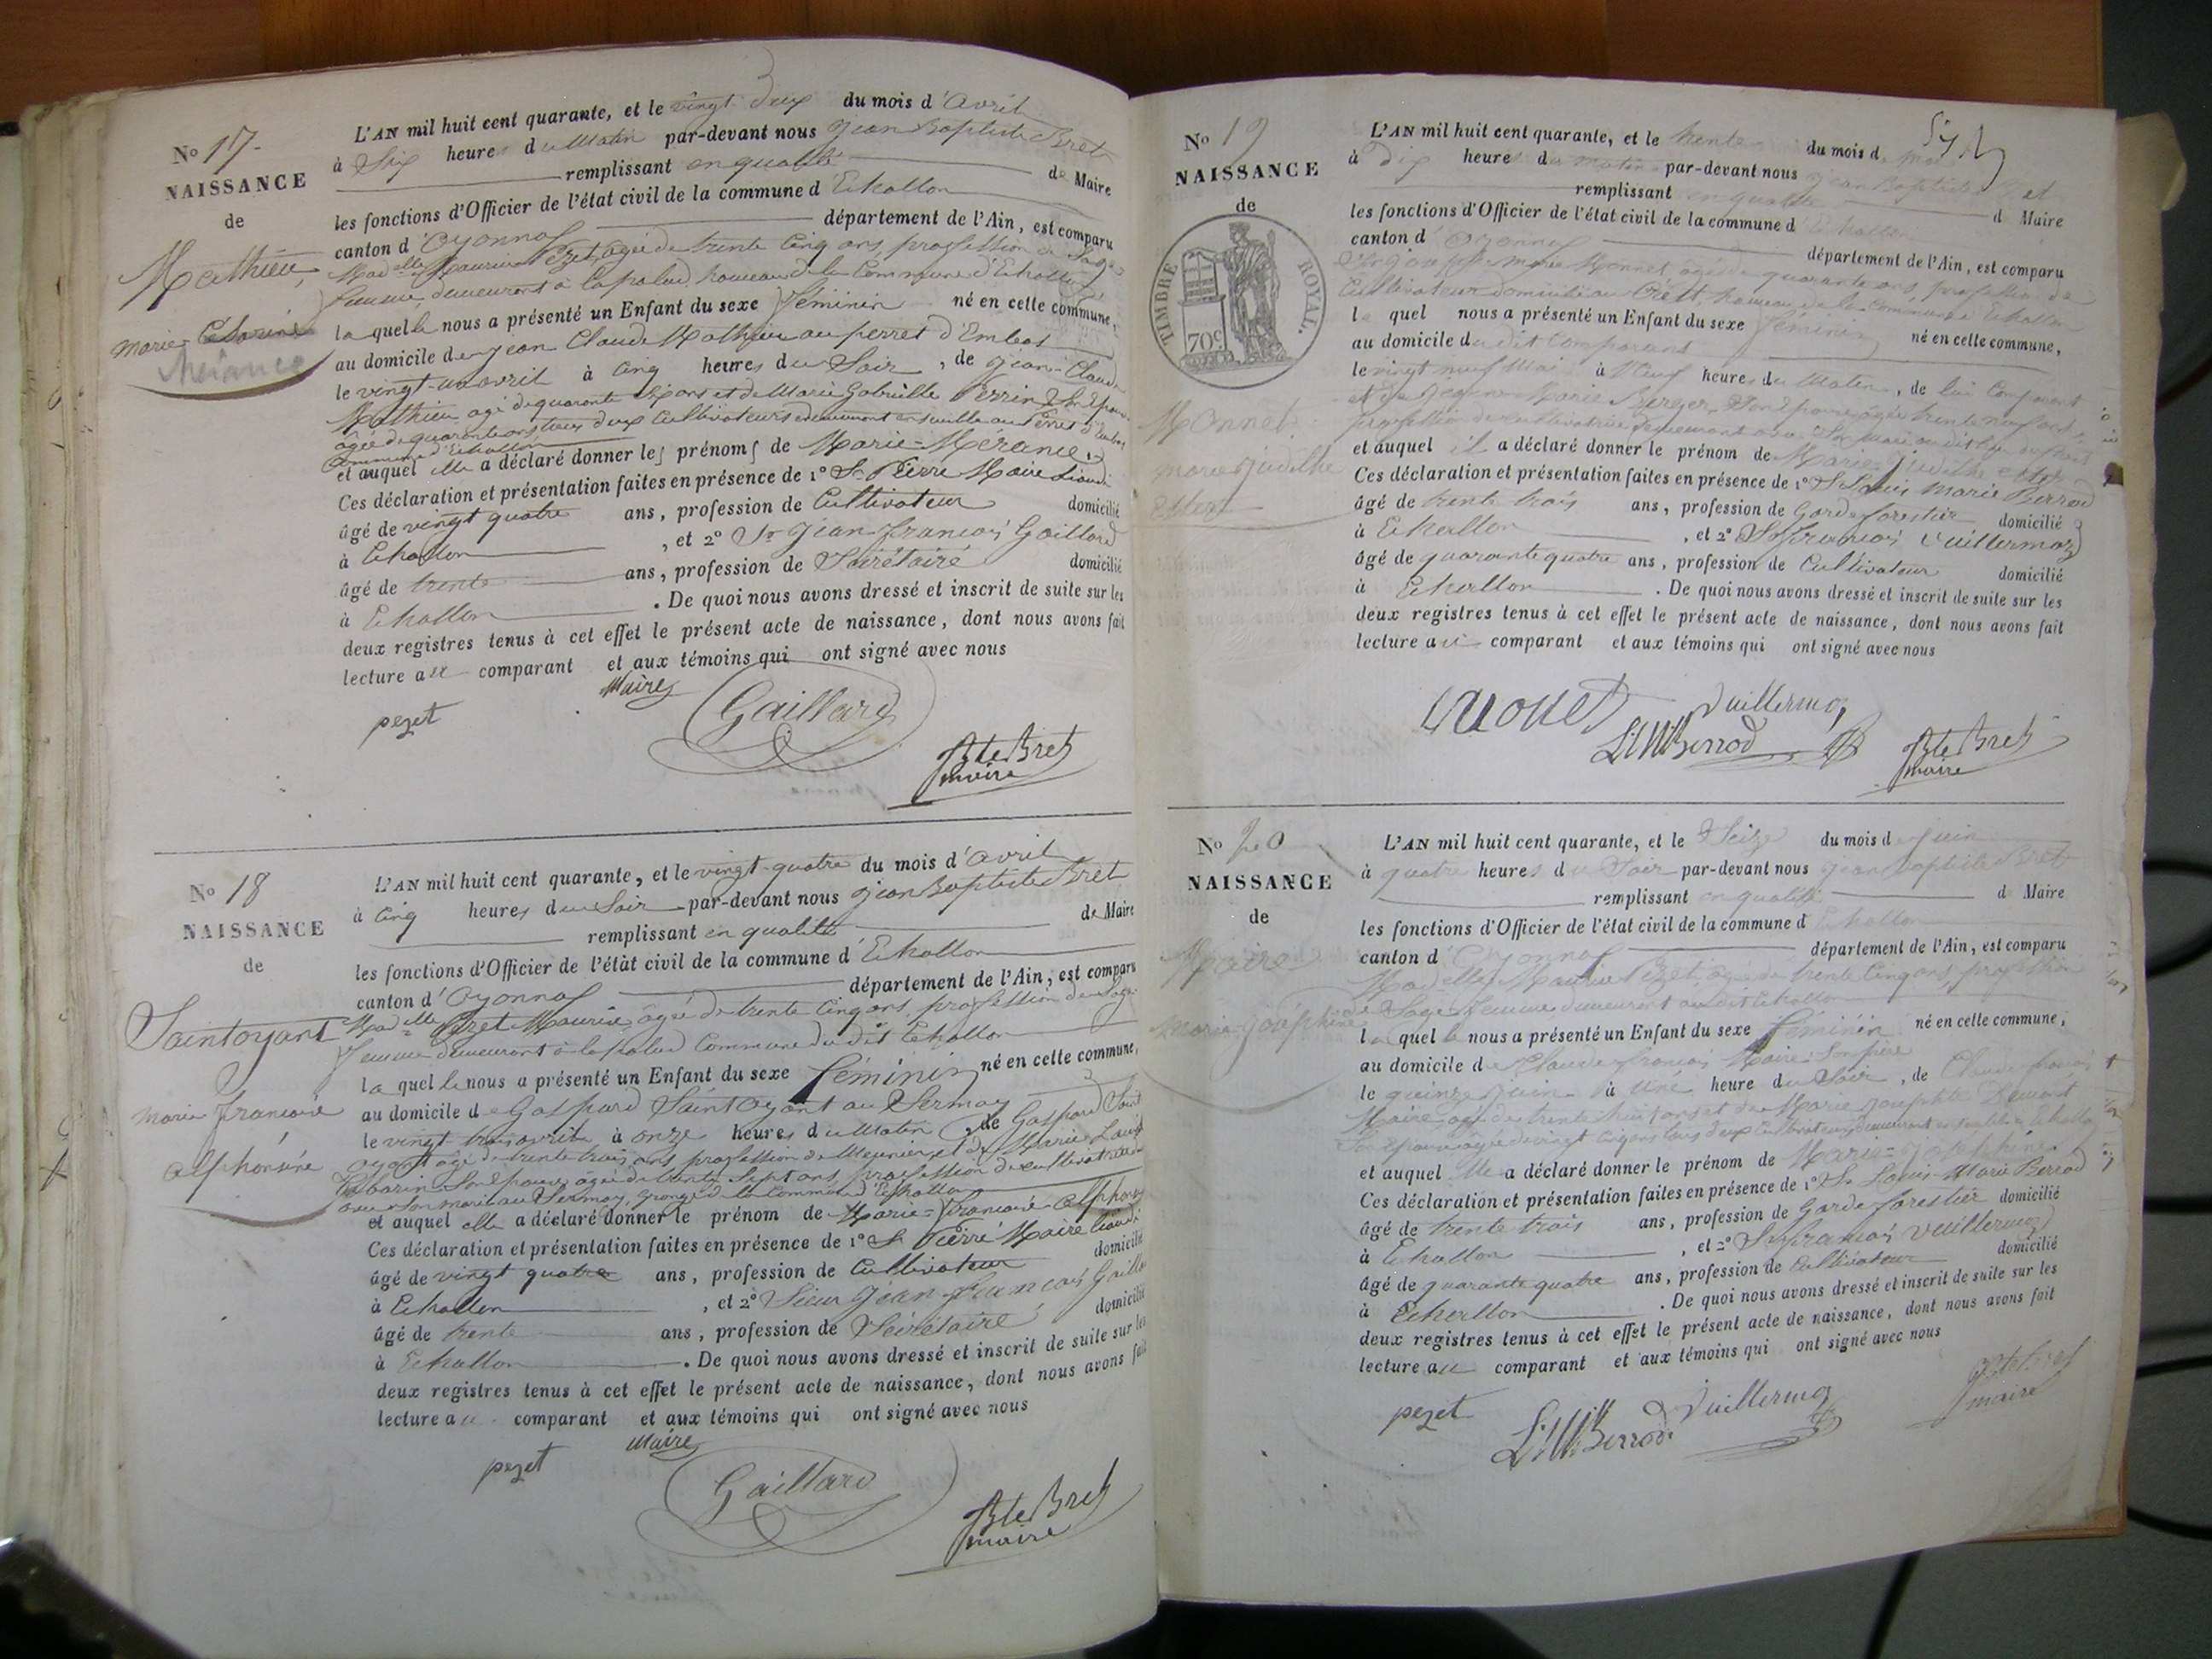 No 17.
NAISSANCE
de
Mathieu,
Marie
Mérance
L'AN mil huit cent quarante, et le vingt deux du mois d'Avril
à Six heures du Matin par-devant nous jean Baptiste Bret
remplissant en qualité de Maire
les fonctions d'Officier de l'état civil de la commune d'Echallon
canton d'Oyonnax département de l'Ain, est comparu
Mad.elle Maurise Pezet, agée de trente Cinq ans profession de Sage
femme demeurant à Lapalud hameau de la Commune d'Echallon
laquelle nous a présenté un Enfant du sexe féminin né en cette commune,
au domicile de jean Claude Mathieu au perret d'Embas
le vingt-un avril à Cinq heures du Soir, de jean-Claude
Mathieu agé de quarante ans et de Marie Gabrielle Perrin Son Epouse
agée de quarante ans tous deux Cultivateurs demeurant ensemble au Perret d'Embas
Commune d'Echallon
et auquel elle a déclaré donner les prénoms de Marie=Mérance.
Ces déclaration et présentation faites en présence de 1° Sr Pierre Maire Liaudi
âgé de vingt quatre ans, profession de Cultivateur domicilié
à Echallon, et 2° Sr Jean françois Gaillard
âgé de trente ans, profession de Sécrétaire domicilié
à Echallon. De quoi nous avons dressé et inscrit de suite sur les
deux registres tenus à cet effet le présent acte de naissance, dont nous avons fait
lecture au comparant et aux témoins qui ont signé avec nous
pezet
Maire
Gaillard
Bte Bret
maire
No 18
NAISSANCE
de
Saintoyant
Marie françoise
alphonsine
L'AN mil huit cent quarante, et le vingt-quatre du mois d'avril
à Cinq heures du Soir par-devant nous jean Baptiste Bret
remplissant en qualité de Maire
les fonctions d'Officier de l'état civil de la commune d'Echallon
canton d'Oyonnax département de l'Ain, est comparu
Mad.elle Pezet Maurise, agée de trente Cinq ans, profession de Sage
femme demeurant à lapalud Commune du dit Echallon
laquelle nous a présenté un Enfant du sexe féminin né en cette commune,
au domicile de Gaspard Saintoyant au Sermay
le vingt trois avril à onze heures du Matin, de Gaspard Saint
oyant agé de trente trois ans profession de Meunier et de Marie Louise
Tabarin Son Epouse agée de trente Sept ans, profession de cultivatrice
avec Son mari au Sermay, grange de la Commune d'Echallon
et auquel elle a déclaré donner le prénom de Marie=françoise alphonsi
Ces déclaration et présentation faites en présence de 1° Sr Pierre Maire Liaudi
âgé de vingt quatre ans, profession de Cultivateur domicilié
à Echallon, et 2° Sieur Jean-françois Gailla
âgé de trente ans, profession de Sécrétaire domicilié
à Echallon. De quoi nous avons dressé et inscrit de suite sur les
deux registres tenus à cet effet le présent acte de naissance, dont nous avons fait
lecture au comparant et aux témoins qui ont signé avec nous
pezet
Maire
Gaillard
Bte Bret
maire
No 19
NAISSANCE
de
TIMBRE ROYAL.
70c
Monnet
marie judithe
L'AN mil huit cent quarante, et le trente du mois de mai
à dix heures du matin par-devant nous jean Baptiste Bret
remplissant en qualité de Maire
les fonctions d'Officier de l'état civil de la commune d'Echallon
canton d'Oyonnax département de l'Ain, est comparu
Sr joseph Marie Monnet, agé de quarante ans, profession de
Cultivateur domicilié au Crêt, hameau de la Commune d'Echallon
lequel nous a présenté un Enfant du sexe féminin né en cette commune,
au domicile du dit Comparant
le vingt neuf Mai à Neuf heures du Matin, de lui Comparant
et de Marie Berger, Son Epouse agée trente neuf ans
profession de cultivatrice demeurant avec
et auquel il a déclaré donner le prénom de Marie judithe
Ces déclaration et présentation faites en présence de 1° Sr Louis Marie Berrod
âgé de trente trois ans, profession de Garde forestier domicilié
à Echallon, et 2° Sr françois Vuillermoz
âgé de quarante quatre ans, profession de Cultivateur domicilié
à Echallon. De quoi nous avons dressé et inscrit de suite sur les
deux registres tenus à cet effet le présent acte de naissance, dont nous avons fait
lecture au comparant et aux témoins qui ont signé avec nous
Vuillermoz
L M Berrod
Bte Bret
maire
No 20
NAISSANCE
de
Maire
Marie-joséphine
L'AN mil huit cent quarante, et le Seize du mois de juin
à quatre heures du Soir par-devant nous jean Baptiste Bret
remplissant en qualité de Maire
les fonctions d'Officier de l'état civil de la commune d'Echallon
canton d'Oyonnax département de l'Ain, est comparu
Mad.elle Maurise Pezet, agée trente Cinq ans, profession
de Sage femme demeurant au dit Echallon
laquelle nous a présenté un Enfant du sexe féminin né en cette commune,
au domicile de Claude françois Maire Son père
le quinze juin à Une heure du Soir, de Claude françois
Maire, agé de trente ans et de Marie josephte
Son Epouse agée de vingt Cinq ans tous deux Cultivateurs demeurant ensemble à Echallon
et auquel elle a déclaré donner le prénom de Marie=joséphine
Ces déclaration et présentation faites en présence de 1° Sr Louis-Marie Berrod
âgé de trente trois ans, profession de Garde forestier domicilié
à Echallon, et 2° Sr françois Vuillermoz
âgé de quarante quatre ans, profession de Cultivateur domicilié
à Echallon. De quoi nous avons dressé et inscrit de suite sur les
deux registres tenus à cet effet le présent acte de naissance, dont nous avons fait
lecture au comparant et aux témoins qui ont signé avec nous
pezet
L M Berrod
Vuillermoz
Bte Bret
maire